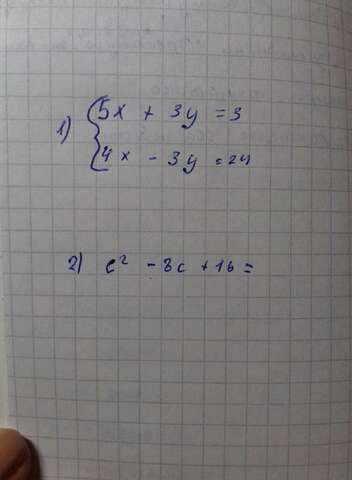 1) { 5x + 3y = 3
4x - 3y = 24
2) c² - 8c + 16 =